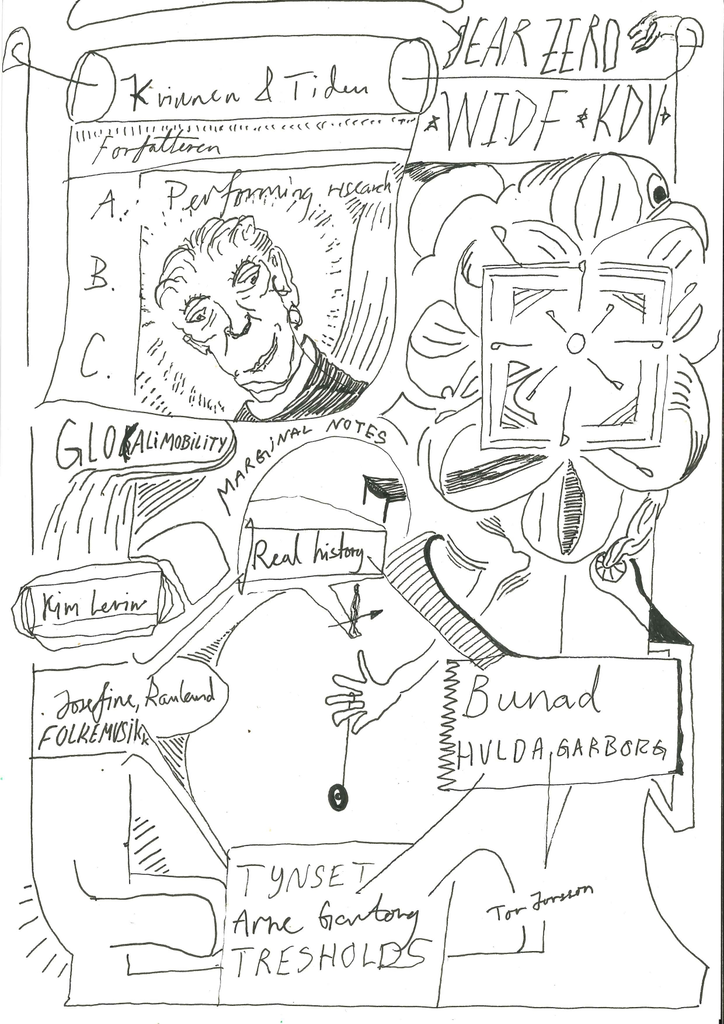 YEAR ZERO
Kvinnen & Tiden
WIDF * KDV
Forfatteren
A. Performing research
B.
C.
GLOKALIMOBILITY
MARGINAL NOTES
Real history
Kim Levin
Josefine, Rauland
FOLKEMUSIKK
Bunad
HULDA GARBORG
TYNSET
Arne Garborg
TRESHOLDS
Tor Jonsson